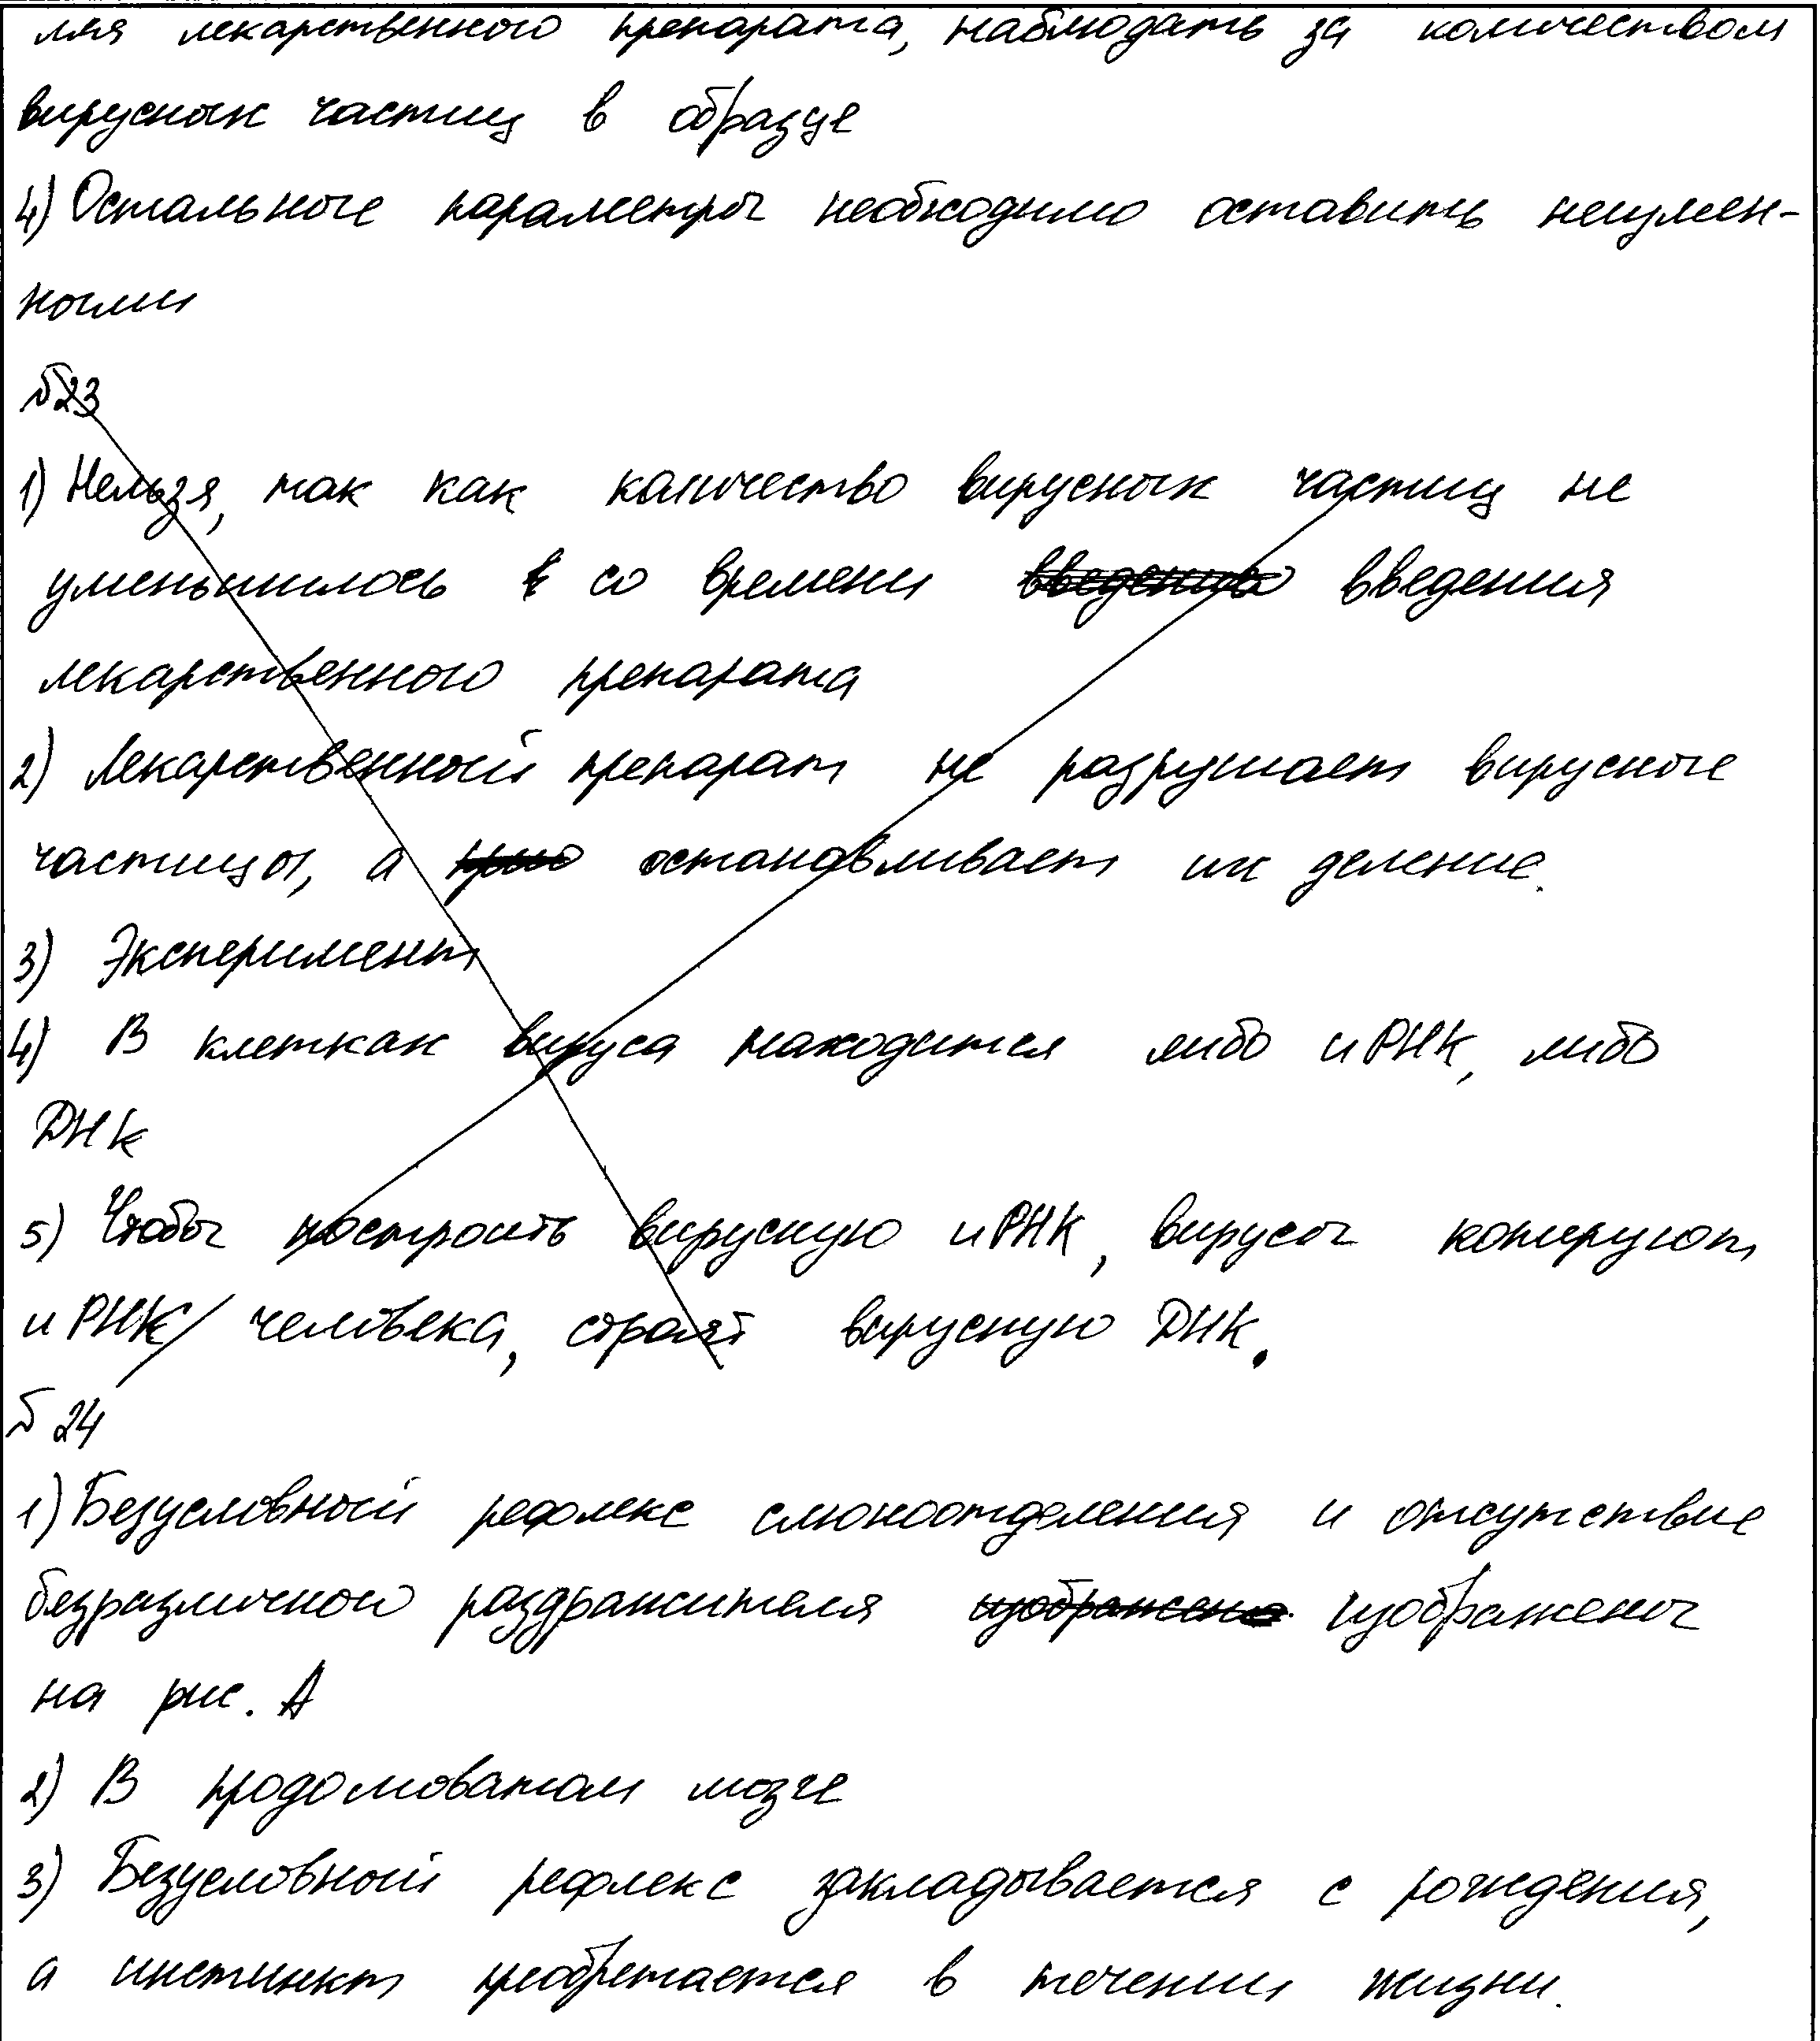 ния лекарственного препарата, наблюдать за количеством
вирусных частиц в образце
4) Остальные параметры необходимо оставить неизмен-
ными
№23
1) Нельзя, так как количество вирусных частиц не
уменьшилось в со времени введения введения
лекарственного препарата
2) Лекарственный препарат не разрушает вирусные
частицы, а останавливает их деление.
3) Эксперимент
4) В клетках вируса находится либо иРНК, либо
ДНК
5) Чтобы построить вирусную иРНК, вирусы копируют
иРНК человека, строят вирусную ДНК.
№ 24
1) Безусловный рефлекс слюноотделения и отсутствие
безразличного раздражителя изображена изображены
на рис. А
2) В продолговатом мозге
3) Безусловный рефлекс закладывается с рождения,
а инстинкт преобретается в течении жизни.